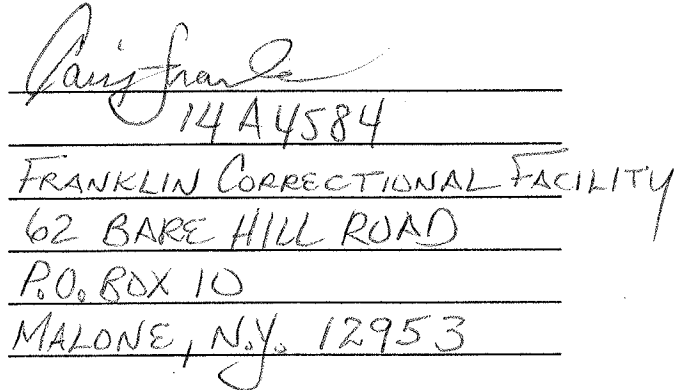 14A4584
FRANKLIN CORRECTIONAL FACILITY
62 BARE HILL ROAD
P.O. BOX 10
MALONE, N.Y. 12953